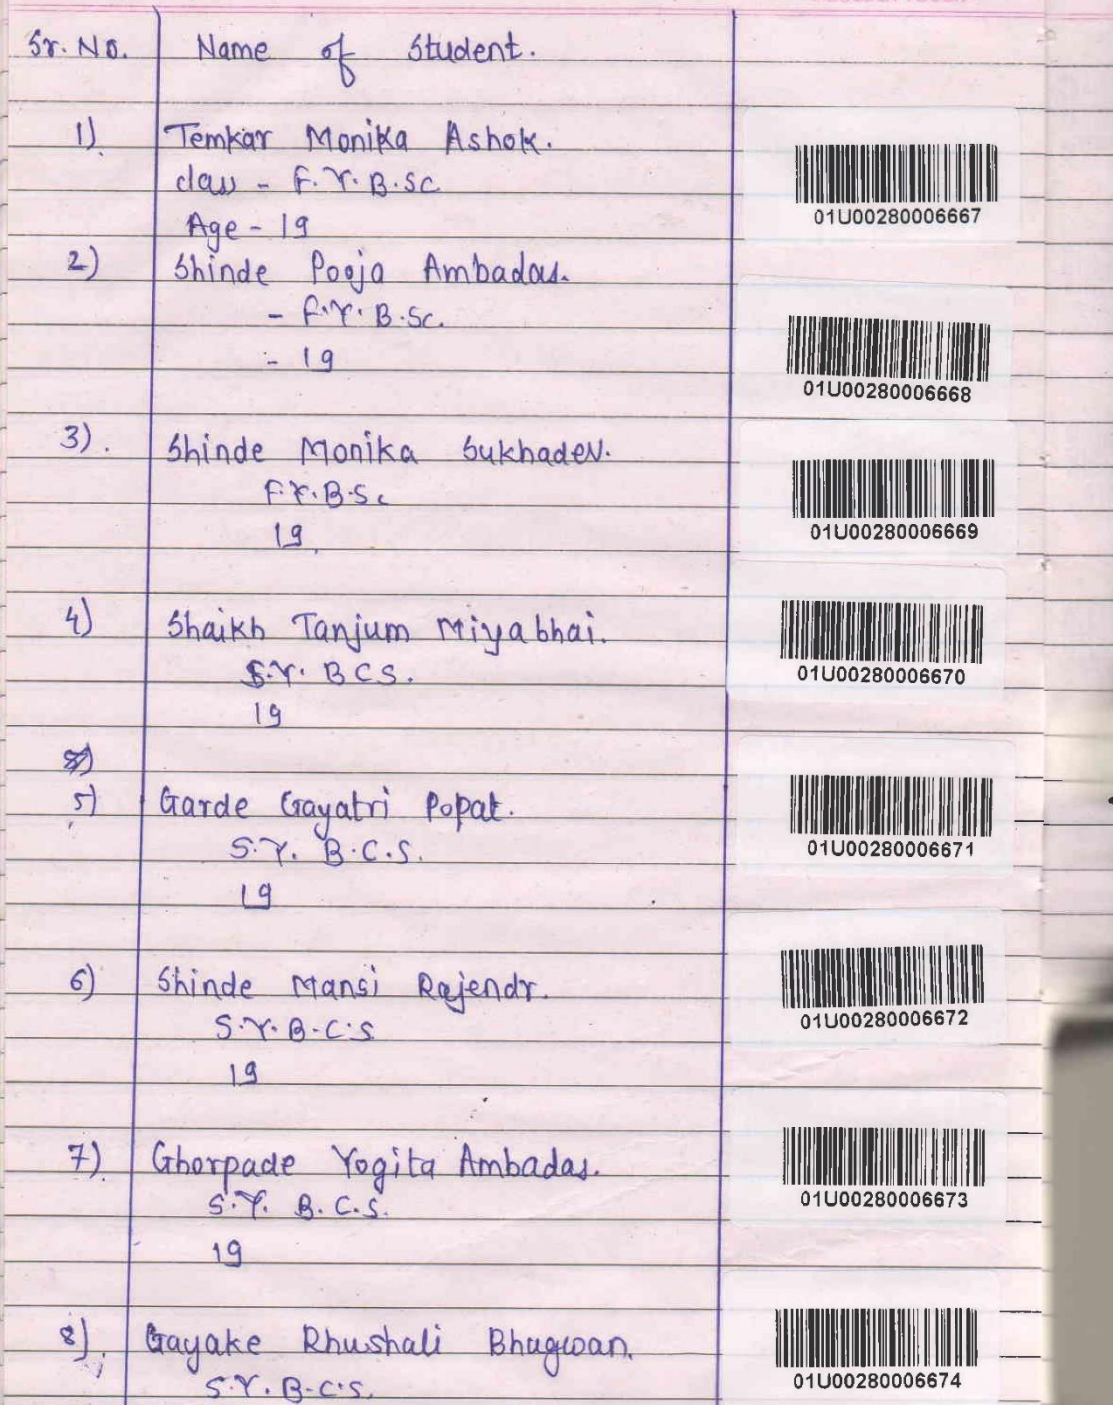 Sr. No. Name of Student.
1) Temkar Monika Ashok.
class - F.Y.B.SC
01U00280006667
Age - 19
2) Shinde Pooja Ambadas.
- F.Y.B.Sc.
- 19
01U00280006668
3). Shinde Monika Sukhadev.
F.Y.B.Sc
19.
01U00280006669
4) Shaikh Tanjum Miyabhai.
S.Y. BCS.
01U00280006670
19
5) Garde Gayatri Popat.
S.Y. B.C.S.
01U00280006671
19
6) Shinde Mansi Rajendr.
S.Y.B.C.S
01U00280006672
19
7) Ghorpade Yogita Ambadas.
S.Y. B.C.S.
01U00280006673
19
8). Gayake Rhushali Bhagwan.
S.Y.B.C.S.
01U00280006674